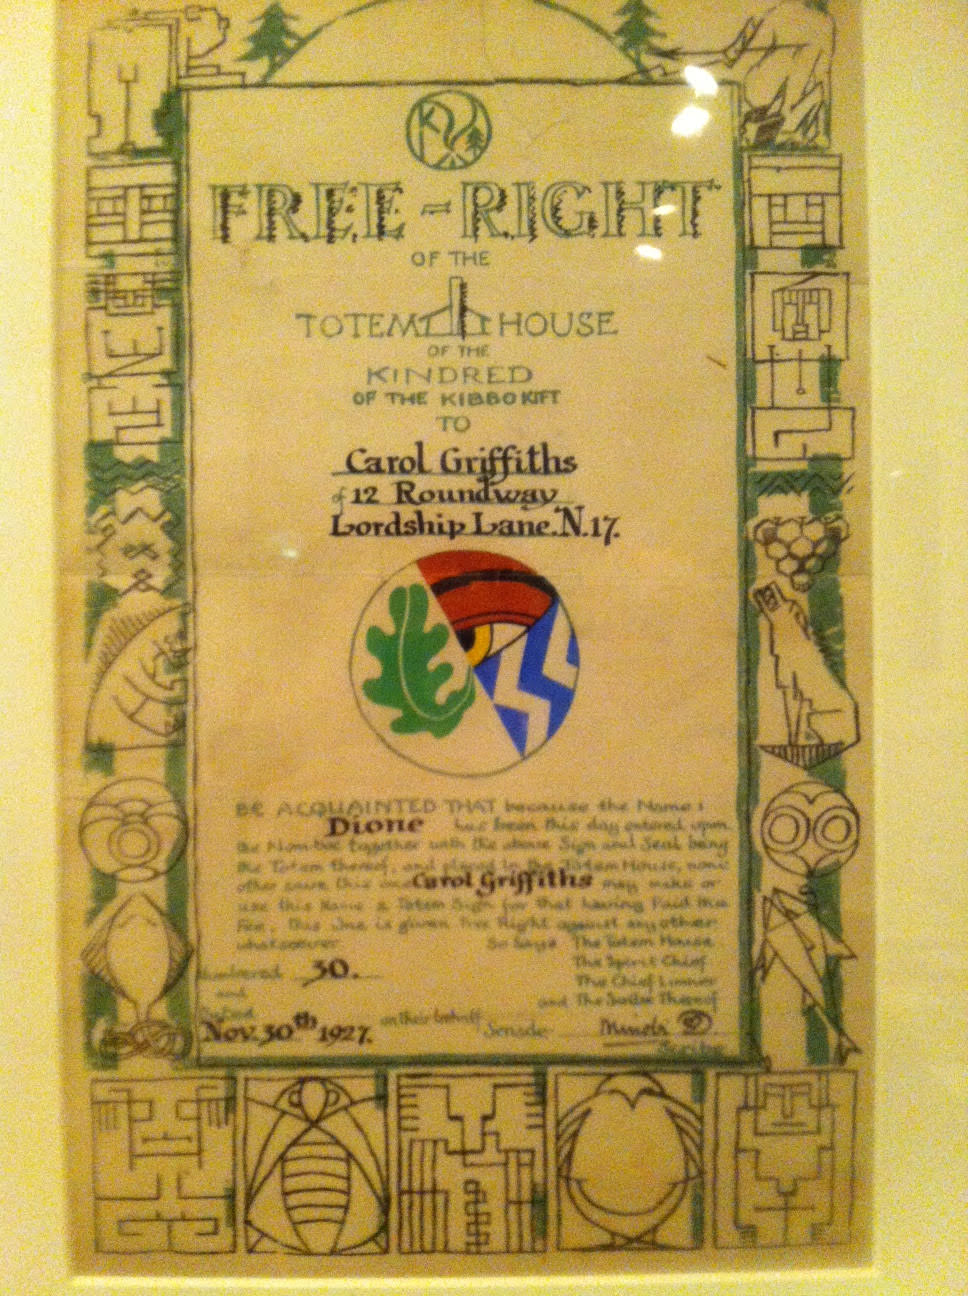 FREE-RIGHT
OF THE
TOTEM HOUSE
OF THE
KINDRED
OF THE KIBBO KIFT
TO
Carol Griffiths
of 12 Roundway
Lordship Lane. N.17.
BE ACQUAINTED THAT because the Name:
Dione has been this day entered upon
the together with the above Sign and Seal being
the Totem thereof, and placed in the Totem House, none
other save this one Carol Griffiths may make or
use this Name & Totem Sign for that having Paid the
Fee. This One is given Free Right against any other
whatsoever. So Says The Totem House.
The Spirit Chief
Numbered 30. The Chief Limner
and and The Scribe Thereof
Dated
Nov. 30th 1927. on their behalf Minobi
Scribe